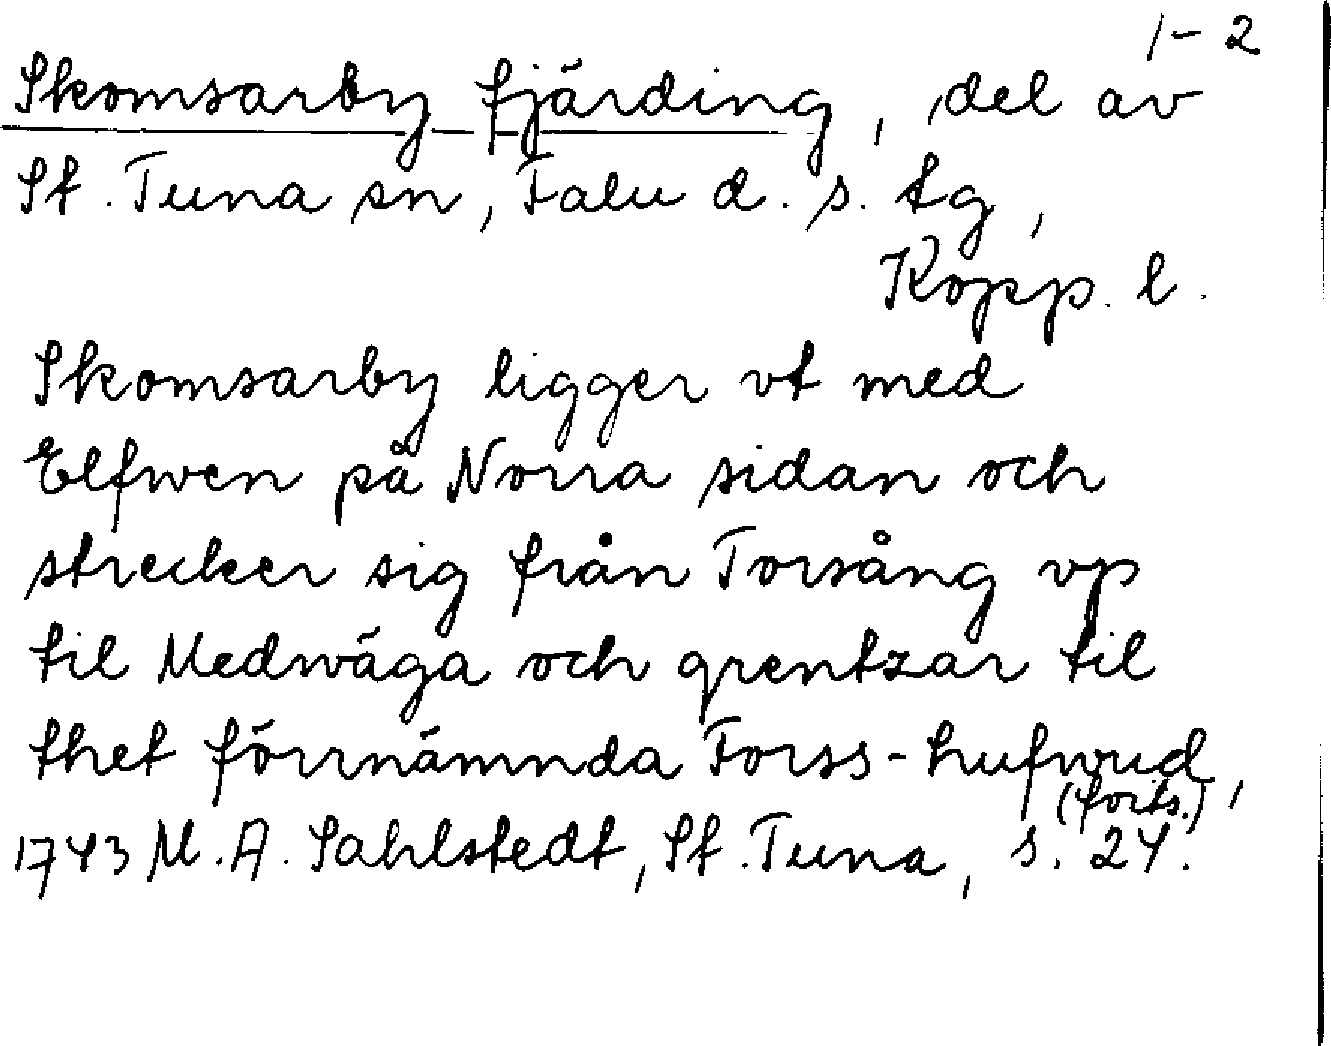 1-2
Skomsarby fjärding, del av
St. Tuna sn, Falu d. s. tg,
Kopp. l.
Skomsarby ligger vt med
Elfwen på Norra sidan och
strecker sig från Torsång vp
til Medwåga och grentzar til
thet förrnämnda Forss-hufwud,
(forts.)
1743 M. A. Sahlstedt, St. Tuna, s. 24.